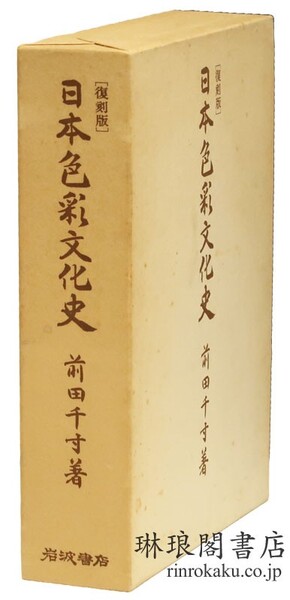 [復刻版]
日本色彩文化史
前田千寸著
岩波書店
[復刻版]
日本色彩文化史
前田千寸著
琳琅閣書店
rinrokaku.co.jp